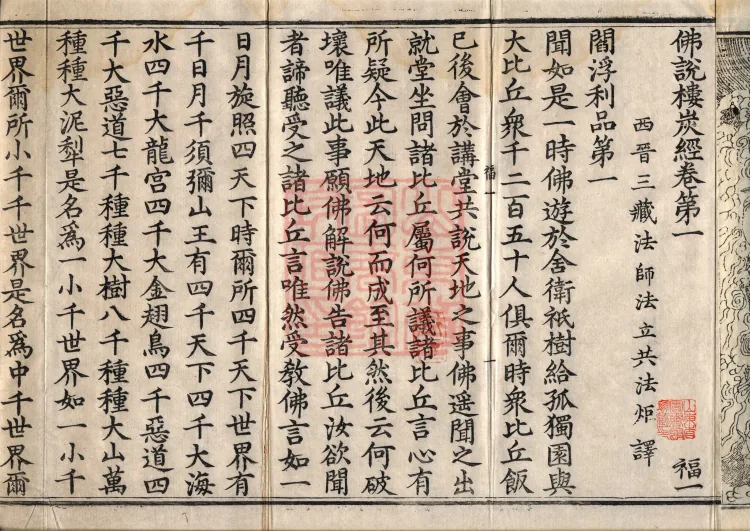 佛說樓炭經卷第一 福一
西晉三藏法師法立共法炬譯
閻浮利品第一
聞如是一時佛遊於舍衛祇樹給孤獨園與
大比丘衆千二百五十人俱爾時衆比丘飯
福一 一
已後會於講堂共說天地之事佛遥聞之出
就堂坐問諸比丘屬何所議諸比丘言心有
所疑今此天地云何而成至其然後云何破
壞唯議此事願佛解說佛告諸比丘汝欲聞
者諦聽受之諸比丘言唯然受教佛言如一
日月旋照四天下時爾所四千天下世界有
千日月千須彌山王有四千天下四千大海
水四千大龍宮四千大金翅鳥四千惡道四
千大惡道七千種種大樹八千種種大山萬
種種大泥犁是名爲一小千世界如一小千
世界爾所小千千世界是名爲中千世界爾